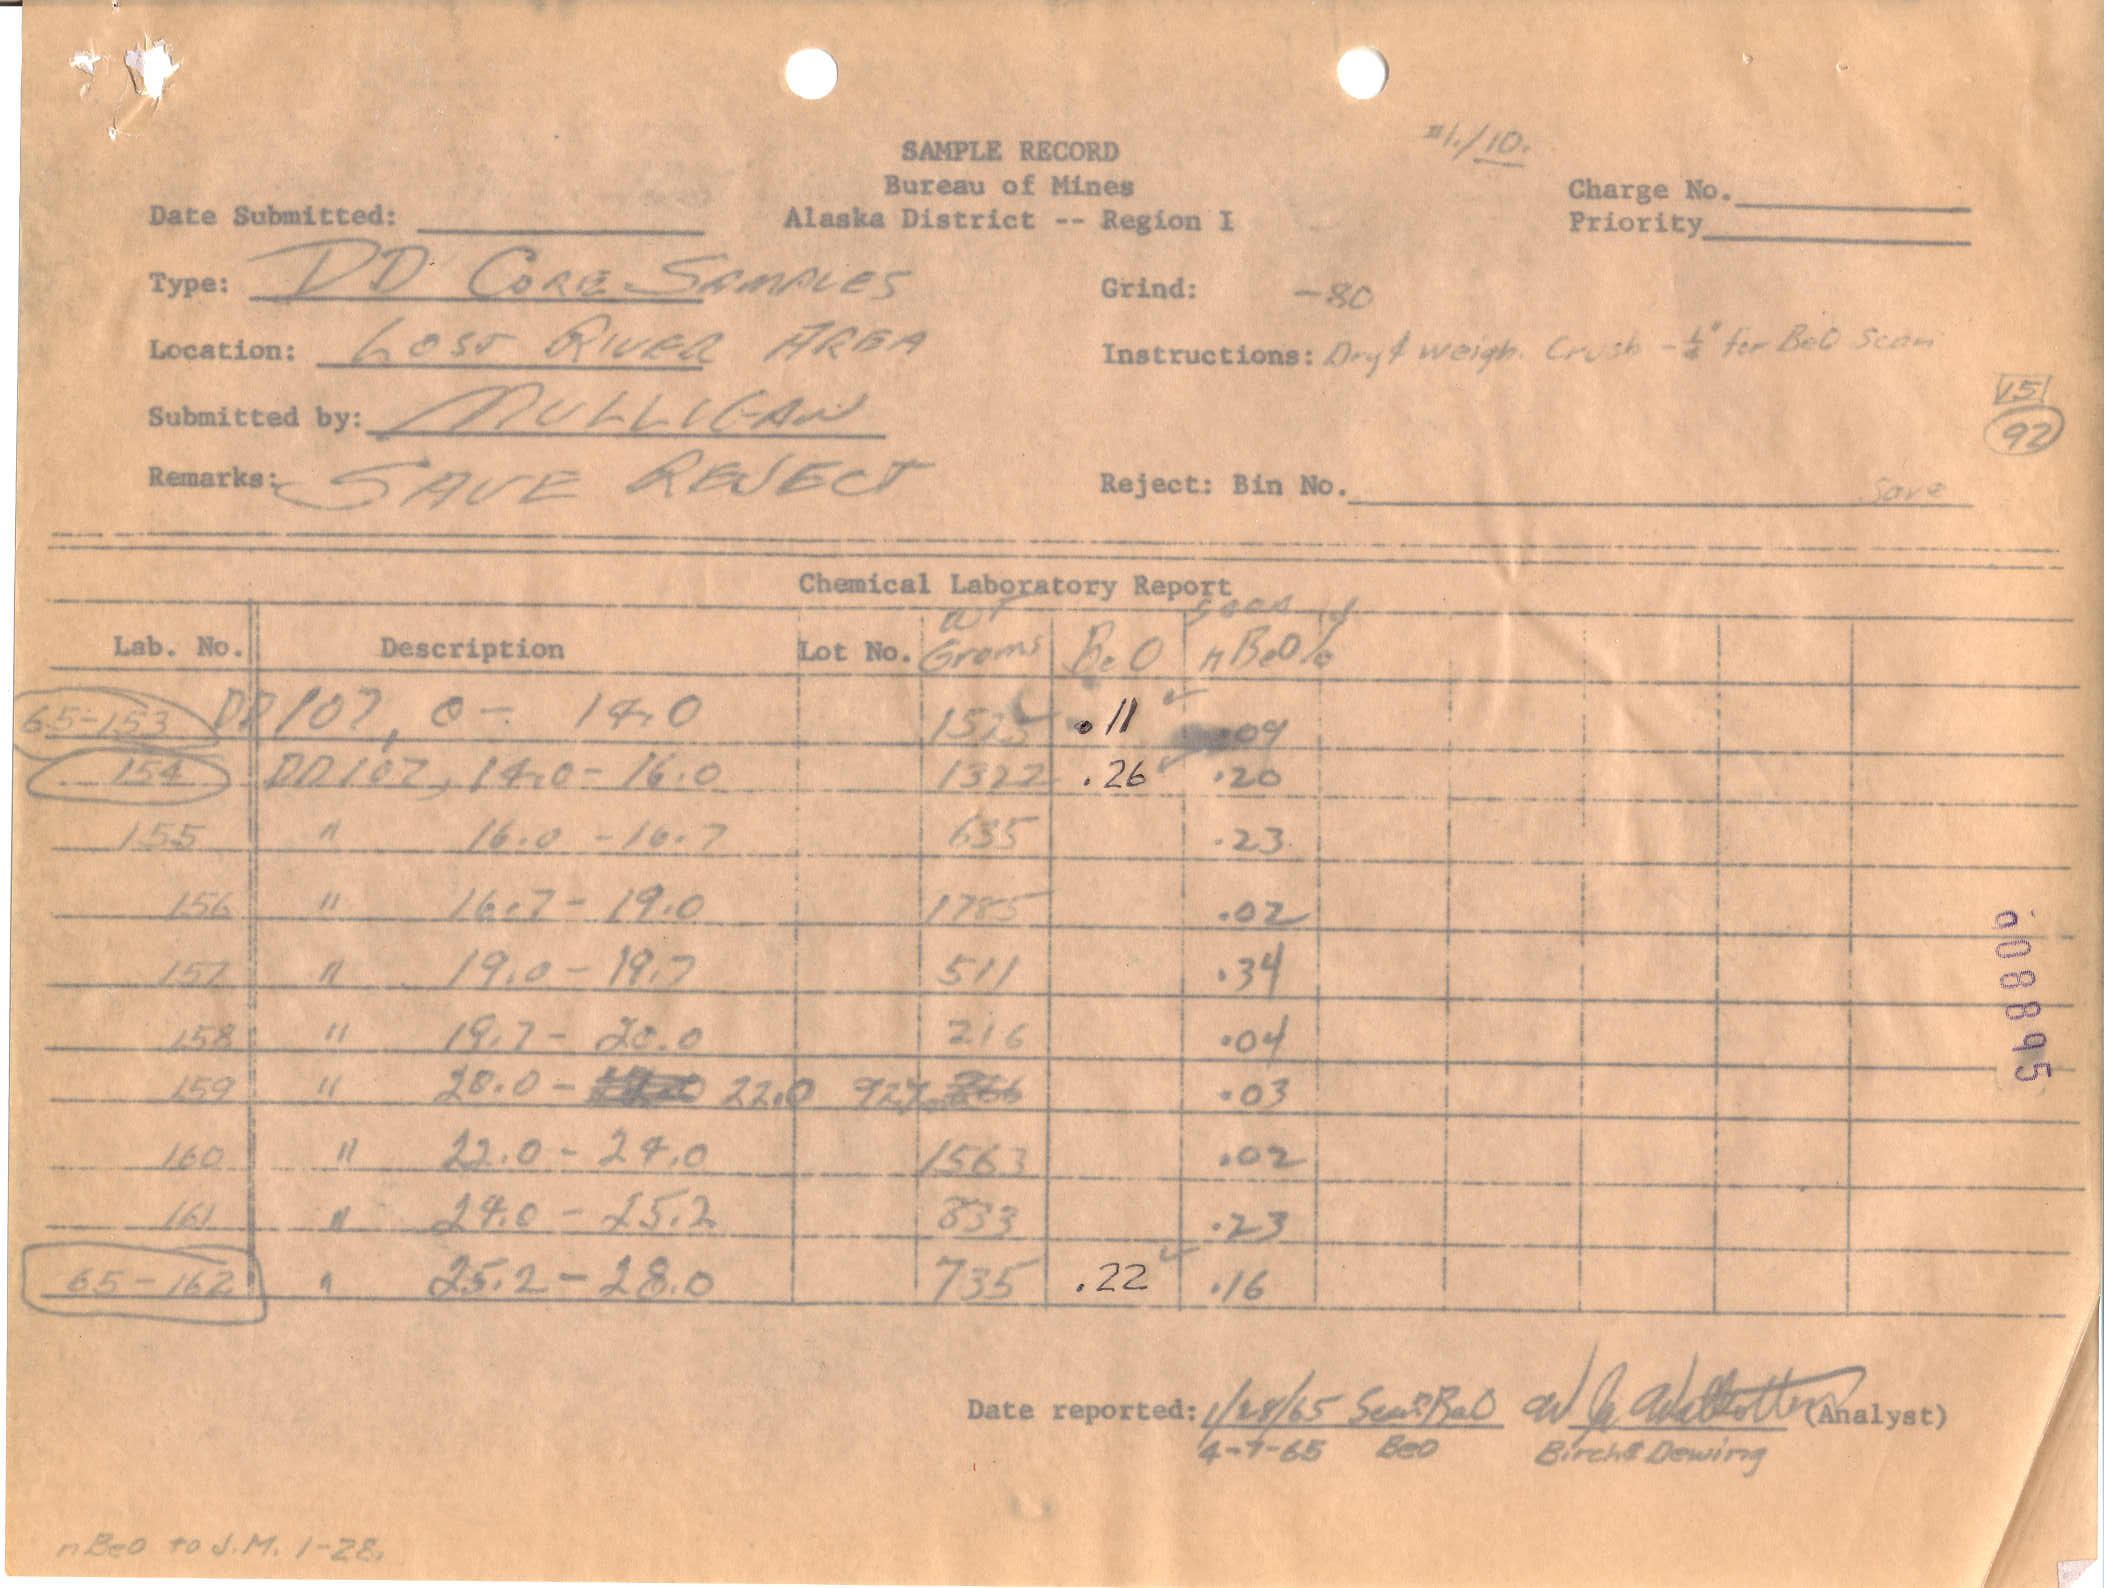 #1./10.
SAMPLE RECORD
Bureau of Mines
Alaska District -- Region I
Charge No.
Priority
Date Submitted:
Type: DD CORE SAMPLES
Grind: -80
Location: LOST RIVER AREA
Instructions: Dry & weigh. Crush -¼" for BeO Scan
15
92
Submitted by: MULLIGAN
Remarks: SAVE REJECT
Reject: Bin No. Save
Chemical Laboratory Report
Lab. No. Description Lot No. WT Grams BeO Scan nBeO%
65-153 DD107, 0 - 14.0 1525 .11 .09
154 DD107, 14.0 - 16.0 1322 .26 .20
155 " 16.0 - 16.7 635 .23
156 " 16.7 - 19.0 1785 .02
157 " 19.0 - 19.7 511 .34
158 " 19.7 - 20.0 216 .04
159 " 20.0 - 22.0 927 .03
160 " 22.0 - 24.0 1563 .02
161 " 24.0 - 25.2 833 .23
65-162 " 25.2 - 28.0 735 .22 .16
008895
Date reported: 1/28/65 Scan BeO (Analyst)
4-7-65 BeO Birch & Dewing
nBeO to J.M. 1-28.